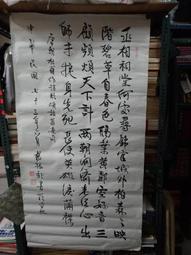 丞相祠堂何處尋錦官城外柏森々映
階碧草自春色隔葉黃鸝空好音三
顧頻煩天下計兩朝開濟老臣心出
師未捷身先死長使英雄淚滿襟
中華民國七十五年